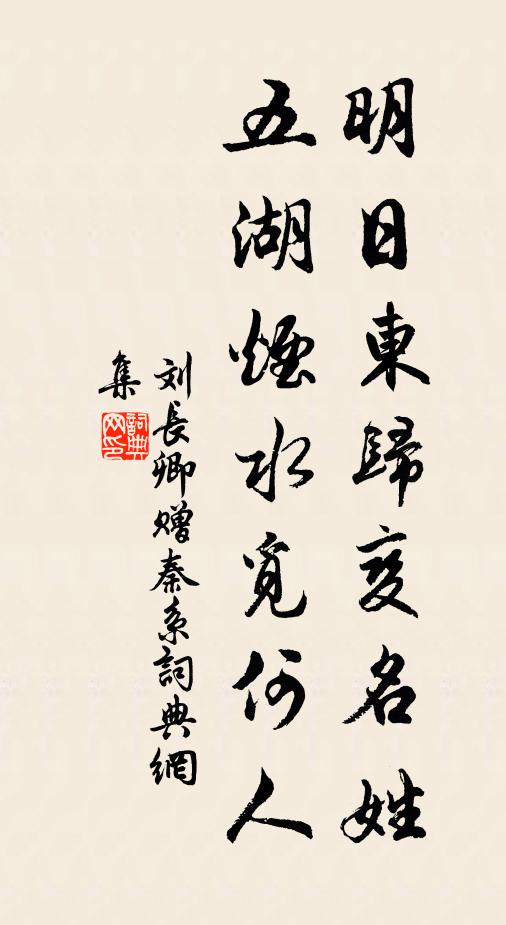 明日東歸变名姓
五湖煙水觅何人
刘長卿赠秦系詞典網
集
詞典网印